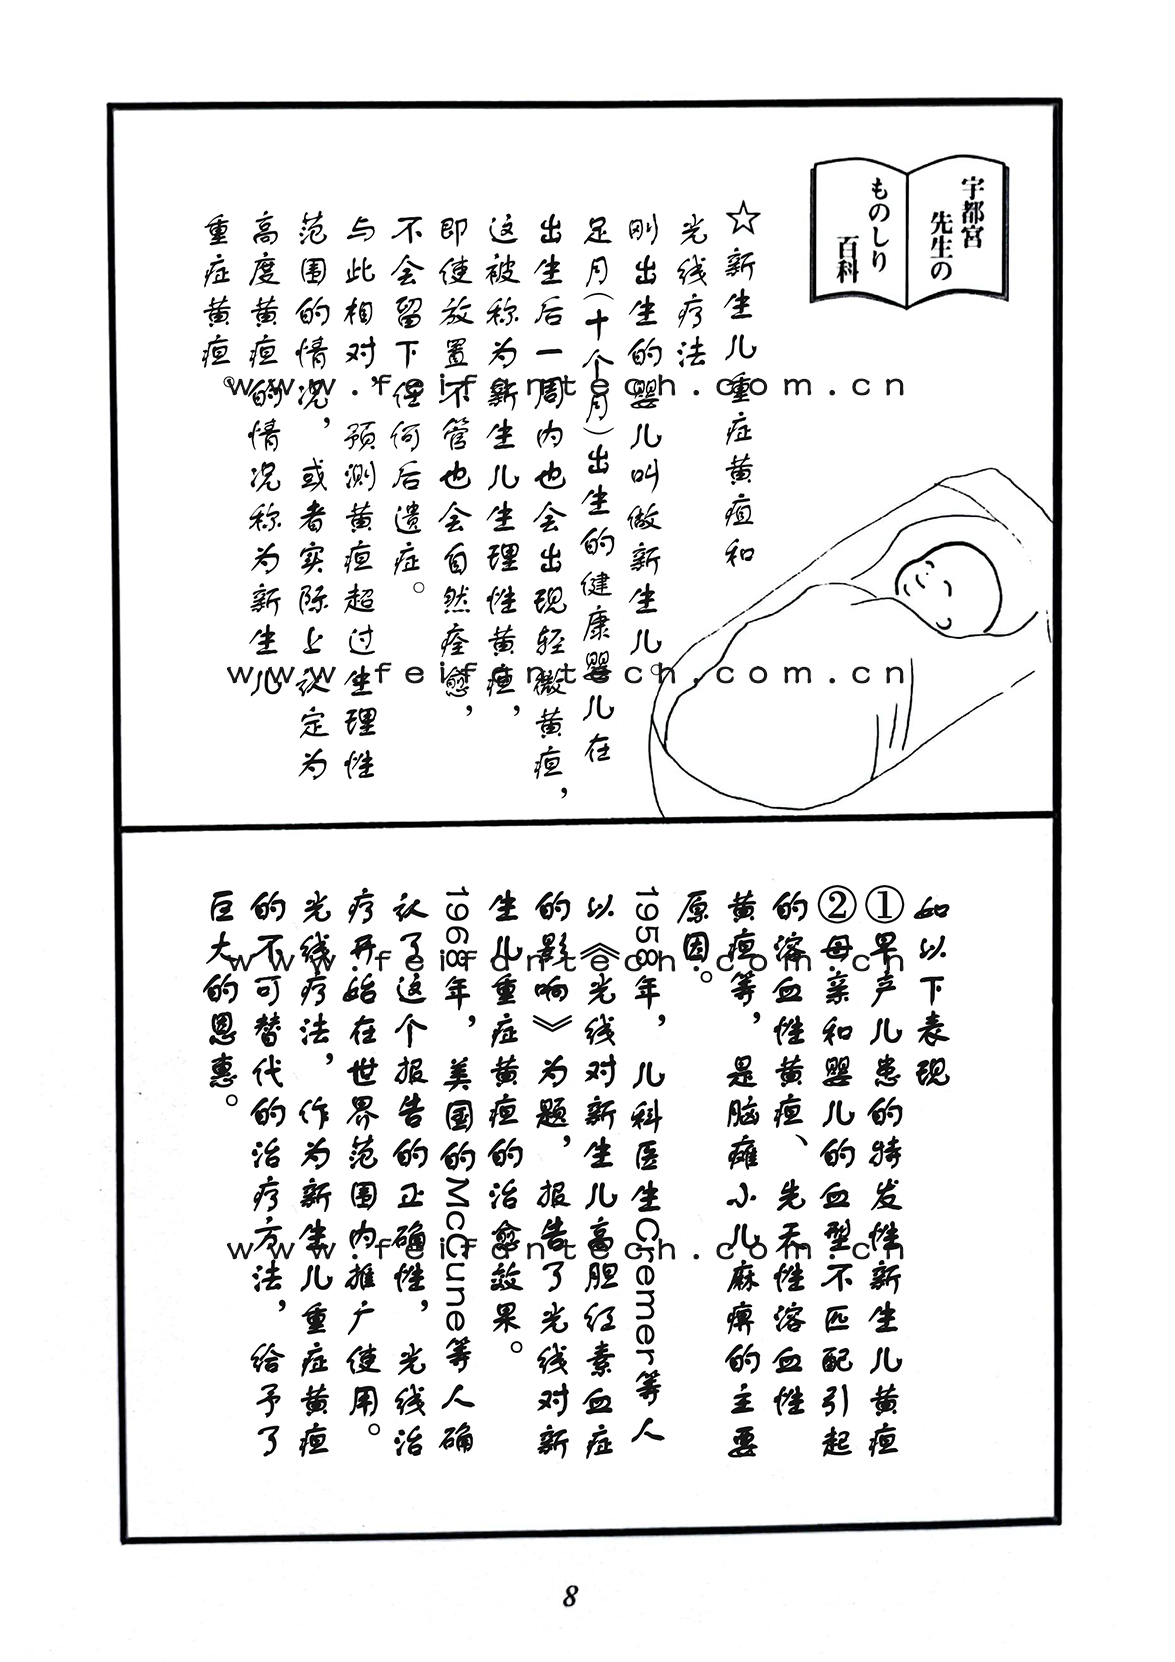 宇都宮
先生の
ものしり
百科
☆新生儿重症黄疸和
光线疗法
刚出生的婴儿叫做新生儿。
足月(十个月)出生的健康婴儿在
出生后一周内也会出现轻微黄疸，
这被称为新生儿生理性黄疸，
即使放置不管也会自然痊愈，
不会留下任何后遗症。
与此相对，预测黄疸超过生理性
范围的情况，或者实际上认定为
高度黄疸的情况称为新生儿
重症黄疸。
www.feifantech.com.cn
www.feifantech.com.cn
如以下表现
①早产儿患的特发性新生儿黄疸
②母亲和婴儿的血型不匹配引起
的溶血性黄疸、先天性溶血性
黄疸等，是脑瘫小儿麻痹的主要
原因。
1958年，儿科医生Cremer等人
以《光线对新生儿高胆红素血症
的影响》为题，报告了光线对新
生儿重症黄疸的治愈效果。
1968年，美国的McCune等人确
认了这个报告的正确性，光线治
疗开始在世界范围内推广使用。
光线疗法，作为新生儿重症黄疸
的不可替代的治疗方法，给予了
巨大的恩惠。
www.feifantech.com.cn
www.feifantech.com.cn
8